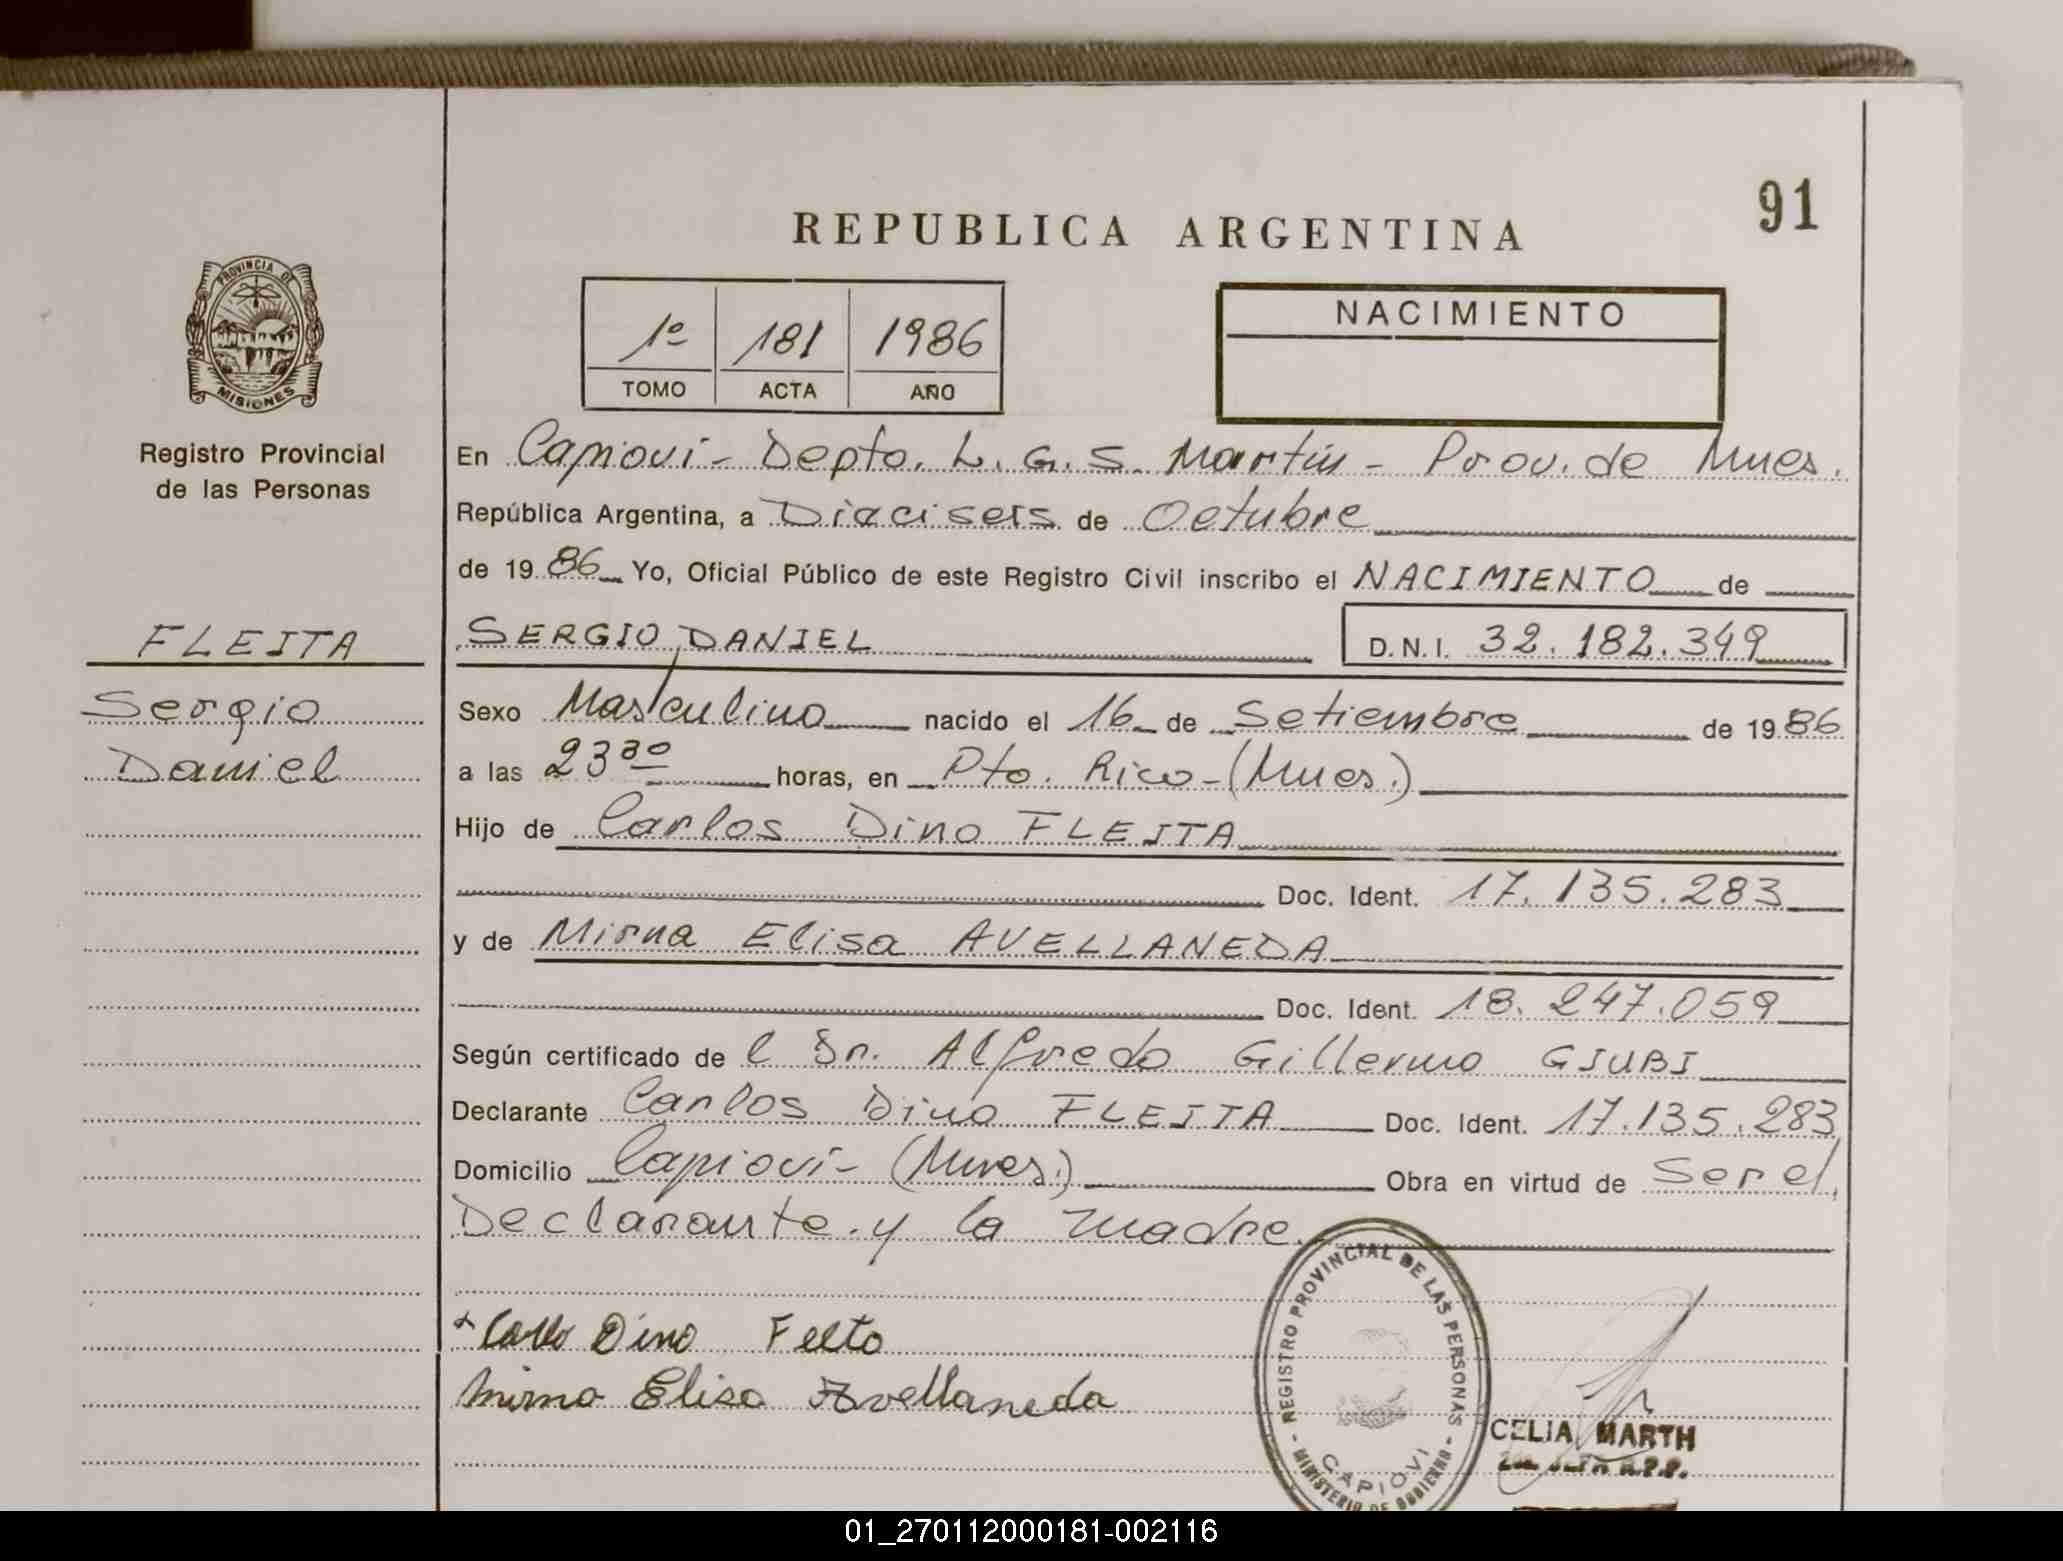 91
REPUBLICA ARGENTINA
PROVINCIA DE
MISIONES
Registro Provincial
de las Personas
1º 181 1986
TOMO ACTA AÑO
NACIMIENTO
En Capioví - Depto. L. G. S. Martín - Prov. de Mnes.
República Argentina, a Dieciseis de Octubre
de 1986 Yo, Oficial Público de este Registro Civil inscribo el NACIMIENTO de
FLEITA
SERGIO DANIEL D.N.I. 32.182.349
Sergio
Sexo Masculino nacido el 16 de Setiembre de 1986
Daniel
a las 23³⁰ horas, en Pto. Rico - (Mnes.)
Hijo de Carlos Dino FLEITA
Doc. Ident. 17.135.283
y de Mirna Elisa AVELLANEDA
Doc. Ident. 18.247.059
Según certificado de l Dr. Alfredo Gillermo GIUBI
Declarante Carlos Dino FLEITA Doc. Ident. 17.135.283
Domicilio Capioví - (Mnes.) Obra en virtud de Ser el
Declarante y la madre.
Dino
Mirna Elisa Avellaneda
REGISTRO PROVINCIAL DE LAS PERSONAS
CAPIOVI
- MINISTERIO DE GOBIERNO -
CELIA MARTH
01_270112000181-002116